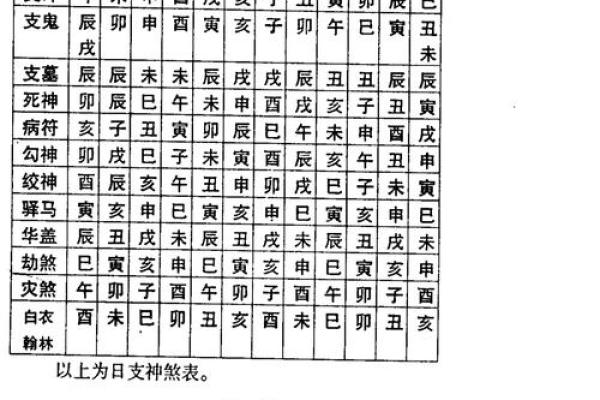 支鬼 辰 卯 申 酉 寅 亥 子 卯 午 巳 寅 丑
戌 未
支墓 辰 辰 未 未 辰 戌 戌 辰 丑 丑 辰 辰
死神 卯 辰 巳 午 未 申 酉 戌 亥 子 丑 寅
病符 亥 子 丑 寅 卯 辰 巳 午 未 申 酉 戌
勾神 卯 戌 巳 子 未 寅 酉 辰 亥 午 丑 申
绞神 酉 辰 亥 午 丑 申 卯 戌 巳 子 未 寅
驿马 寅 亥 申 巳 寅 亥 申 巳 寅 亥 申 巳
华盖 辰 丑 戌 未 辰 丑 戌 未 辰 丑 戌 未
劫煞 巳 寅 亥 申 巳 寅 亥 申 巳 寅 亥 申
灾煞 午 卯 子 酉 午 卯 子 酉 午 卯 子 酉
白衣 酉 未 巳 卯 丑 亥 酉 未 巳 卯 丑 亥
翰林
以上为日支神煞表。